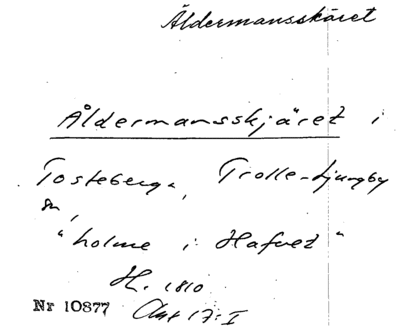 Åldermansskäret
Åldermansskjäret i
Tosteberga, Trolle-Ljungby
sn,
"holme i Hafvet"
H. 1810
Nr 10877 Akt 17:I